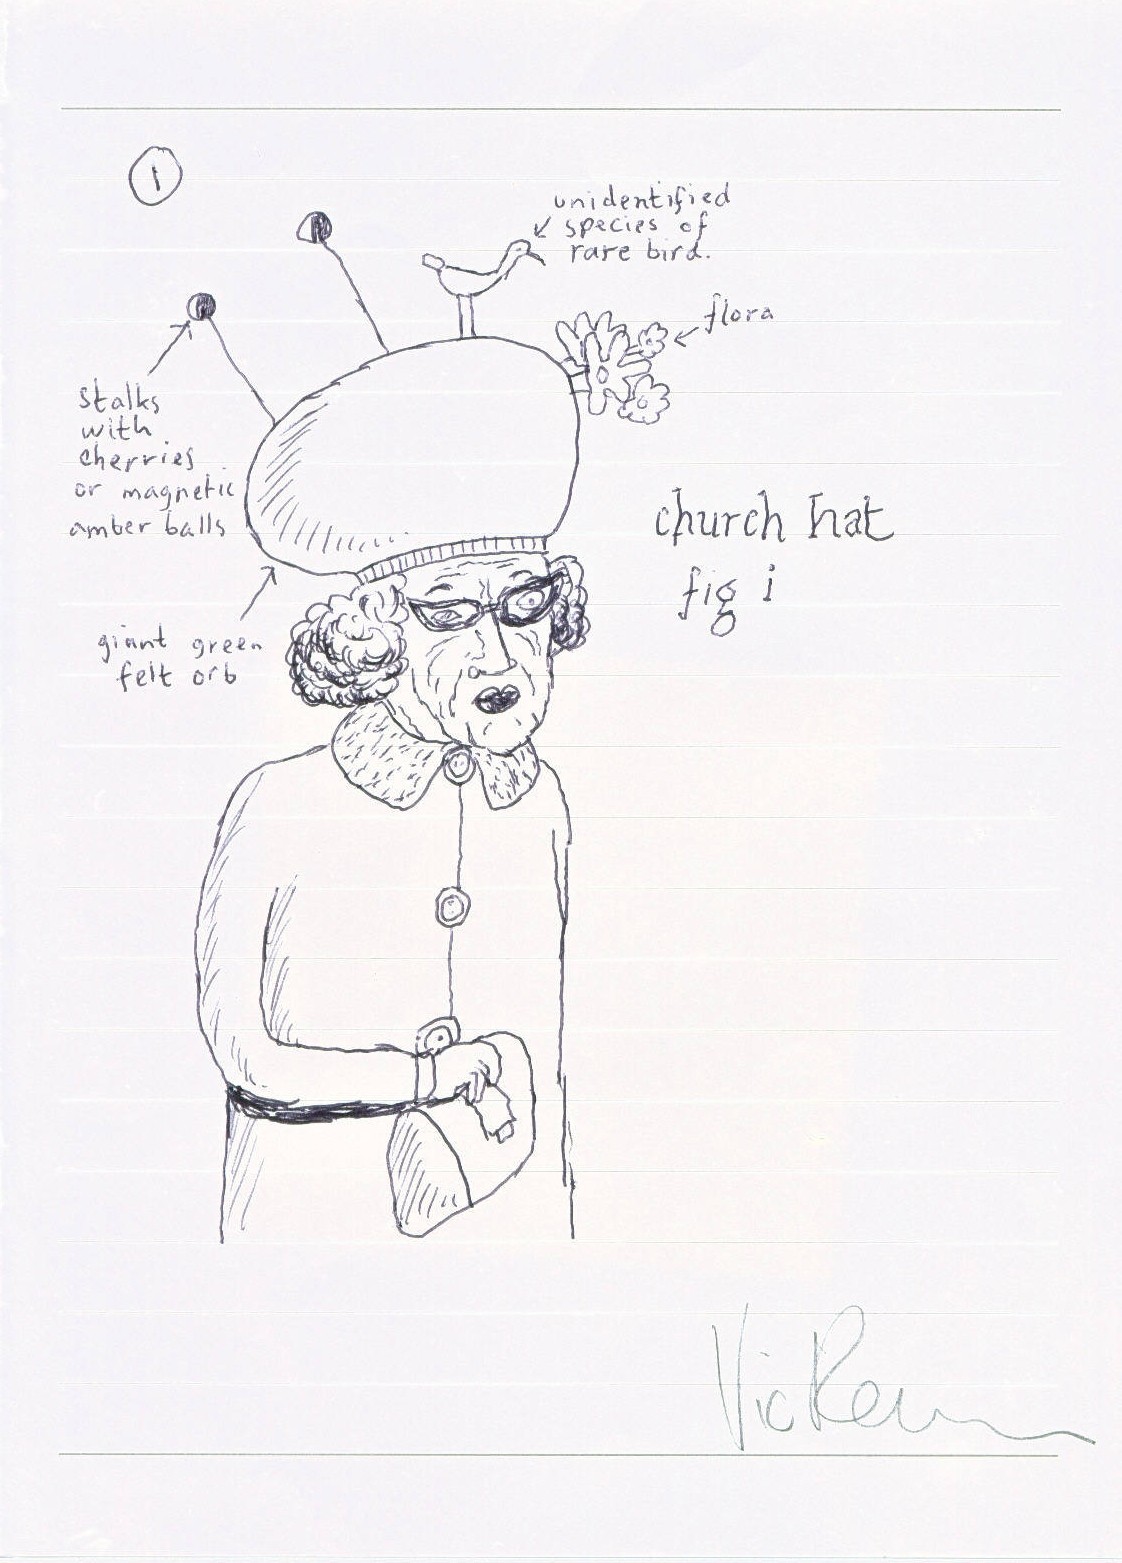 1
unidentified
species of
rare bird.
flora
stalks
with
cherries
or magnetic
amber balls
church hat
fig i
giant green
felt orb
Vic Reeves